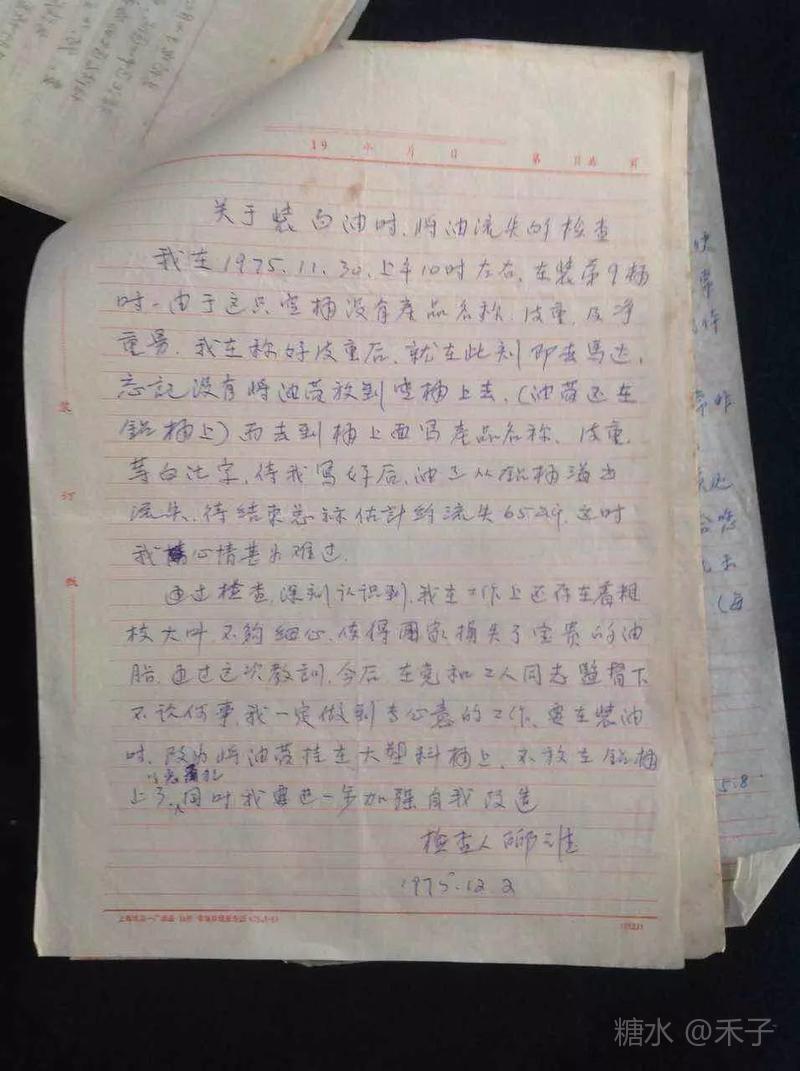 19 年 月 日 第 页共 页
关于装白油时、将油流失的检查
我在1975.11.30.上午10时左右,在装第9桶
时、由于这只空桶没有產品名称、皮重、及净
重号、我在称好皮重后、就在此刻即去馬达,
忘記没有将油管放到空桶上去,(油管还在
铝桶上)而去到桶上面写產品名称、皮重、
等白漆字,待我写好后,油已从铝桶溢出
流失、待结束总称估計约流失65.4
我心情甚为难过.
通过检查,深刻认识到,我在工作上还存在着粗
枝大叶、不夠细心、使得國家损失了宝贵的油
脂,通过这次教訓,今后,在党和工人同志监督下
不论何事,我一定做到专心意的工作、要在装油
时、改为将油管挂在大塑料桶上、不放在铝桶
上了,同时我要进一步加强自我改造
检查人
1975.12.2
装
订
线
5.8
糖水 @禾子